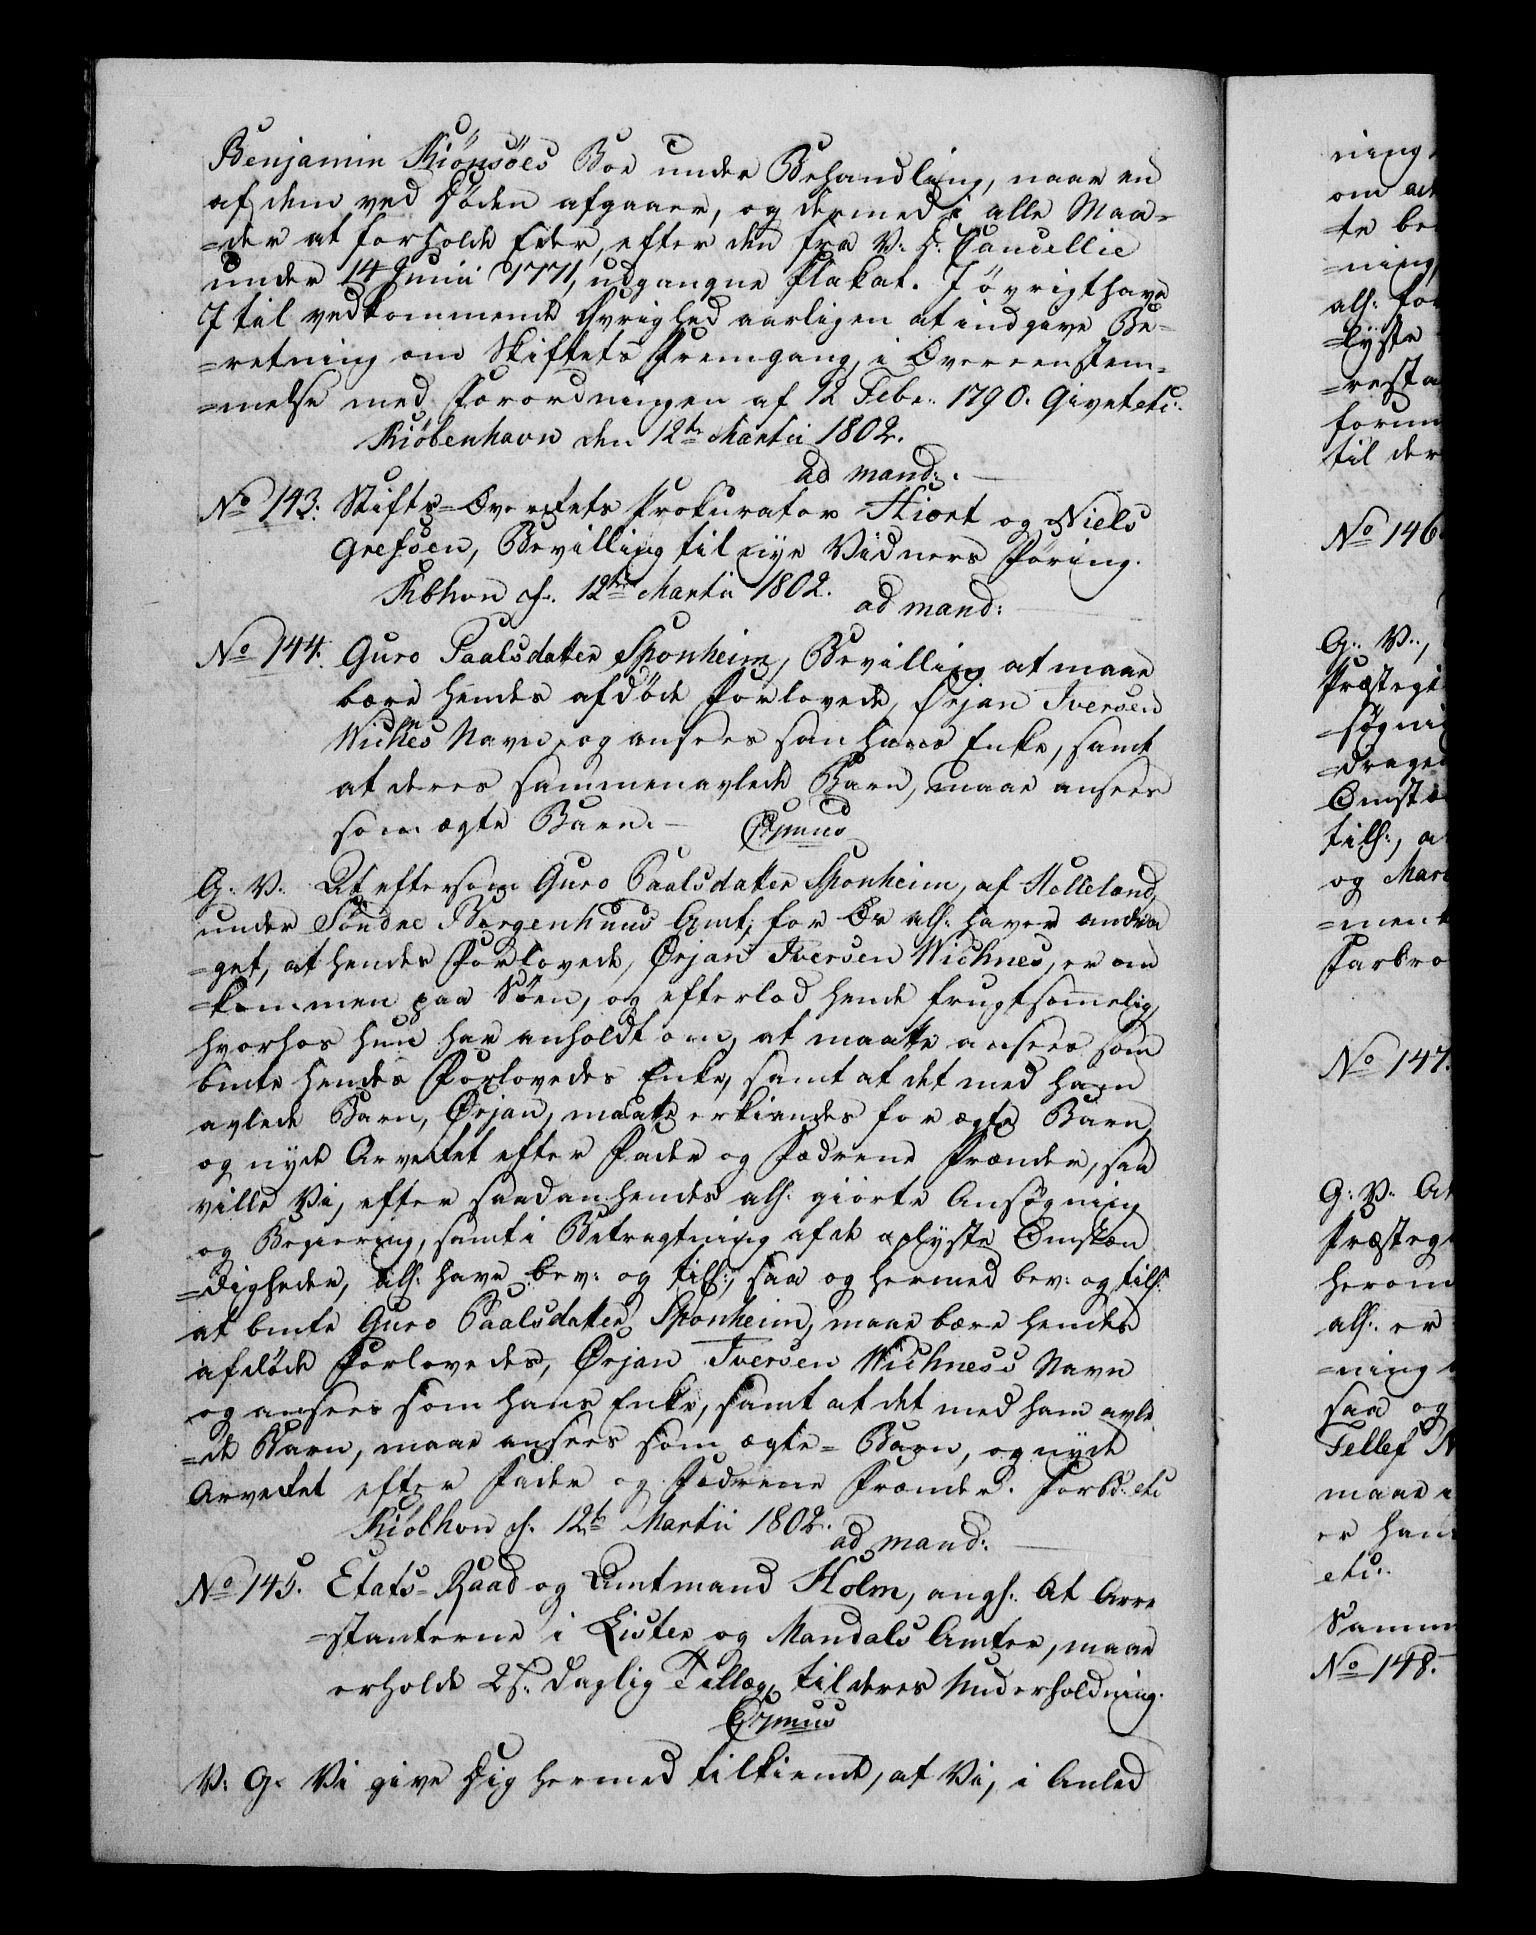 Benjamin Kiönsöes Boe under Behandling, naar en
af dem ved Døden afgaaer, og dermed i alle Maa-
=der at forholde Eder, efter den fra V: D: Cancellie
under 14 Junii 1771, udgangne Plakat. I øvrigt have
I til vedkommende Øvrighed aarligen at indgive Be-
=retning om Skiftets Fremgang, i Overeenstem-
=melse med Forordningen af 12 Febr: 1790. Givet etc:
Kiöbenhavn den 12te Martii 1802.
ad mand:
No 143. Stifts-Overrettets Prokurator Hiort og Niels
Grefsen, Bevilling til nye Vidners Føring.
Kbhvn d. 12te Martii 1802.
ad mand:
No 144. Guro Paalsdatter Sponheim, Bevilling at maae
bære hendes afdöde Forlovede, Ørjan Iversen
Wichnes Navn, og ansees som hans Enke, samt
at deres sammenavlede Barn, maae ansees
som ægte Barn. —
G: V: At eftersom Guro Paalsdatter Sponheim, af Helleland,
under Söndre Bergenhuus Amt, for Os alf: haver andra
=get, at hendes Forlovede, Ørjan Iversen Wichnes, er om
=kommen paa Söen, og efterlod hende frugtsommelig,
hvorhos hun har anholdt om, at maatte ansees som
bmte hendes Forlovedes Enke, samt at det med ham
avlede Barn, Ørjan, maatte erkiendes for ægte Barn,
og nyde Arveret efter Fader og Fædrene Frænder, saa
ville Vi, efter saadan hendes alf: giorte Ansøgning
og Begiering, samt i Betragtning af de oplyste Omstæn
=digheder, alf: have bev: og tilf:, saa og hermed bev: og tilf:
at bmte Guro Paalsdatter Sponheim, maae bære hendes
afdøde Forlovedes, Ørjan Iversen Wichness Navn
og ansees som hans Enke, samt at det med ham avle
=de Barn, maae ansees som ægte= Barn, og nyde
Arveret efter Fader og Fædrene Frænder. Forbd: etc
Kiöbhvn d. 12te Martii 1802.
ad mand:
No 145. Etats-Raad og Amtmand Holm, angf: At Arre
=stanterne i Lister og Mandals Amter, maae
erholde 2 ß. daglig Tillæg, til deres Underholdning.
V: G: Vi give Dig hermed tilkiende, at Vi, i Anled
ning
om
te be
=ning,
alf: for
=lyste
=resta
forun
til der
No 146
G: V:,
Præstegi
søgni
=drage
Omstæ
tilf:, a
og Mar
=ment
Farbro
No 147.
G: V: At
Præsteg
herom
alf: er
=ning
saa og
Tellef N
maae
er han
etc:
Samm
No 148.